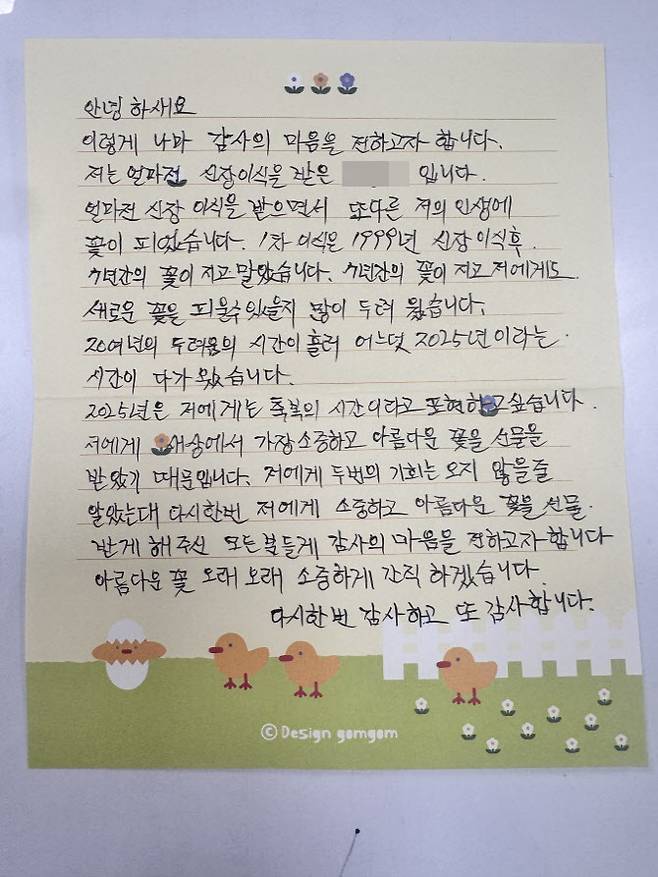 안녕 하세요
이렇게 나마 감사의 마음을 전하고자 합니다.
저는 얼마전 신장이식을 받은 입니다.
얼마전 신장 이식을 받으면서 또다른 저의 인생에
꽃이 피었습니다. 1차 이식은 1999년 신장이식후.
7년간의 꽃이 지고 말았습니다. 7년간의 꽃이 지고 저에게도
새로운 꽃을 피울수 있을지 많이 두려 웠습니다.
20여년의 두려움의 시간이 흘러 어느덧 2025년 이라는
시간이 다가 왔습니다.
2025년은 저에게는 축복의 시간이라고 표현하고싶습니다.
저에게 새상에서 가장 소중하고 아름다운 꽃을 선물을
받았기 때문입니다. 저에게 두번의 기회는 오지 않을줄
알았는대 다시한번 저에게 소중하고 아름다운 꽃을 선물.
받게 해주신 모든분들게 감사의 마음을 전하고자합니다
아름다운 꽃 오래 오래 소중하게 간직 하겠습니다.
다시한번 감사하고 또 감사합니다.
© Design gomgom